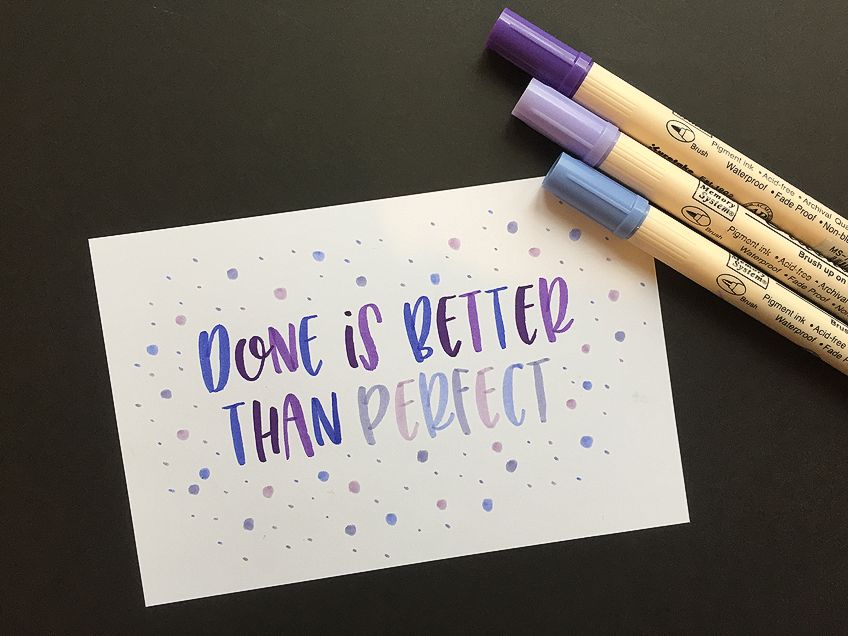 DONE iS BETTER
THAN PERFECT
Brush
Pigment ink • Acid-free • Archival Qua
Waterproof • Fade Proof • Non-bl
MS-
Memory
System®
Brush
Brush up on
Pigment ink • Acid-free • Archival
Waterproof • Fade Proof • Non
Memory
System®
Brush
Pigment ink • Acid-free
Waterproof • Fade Pr